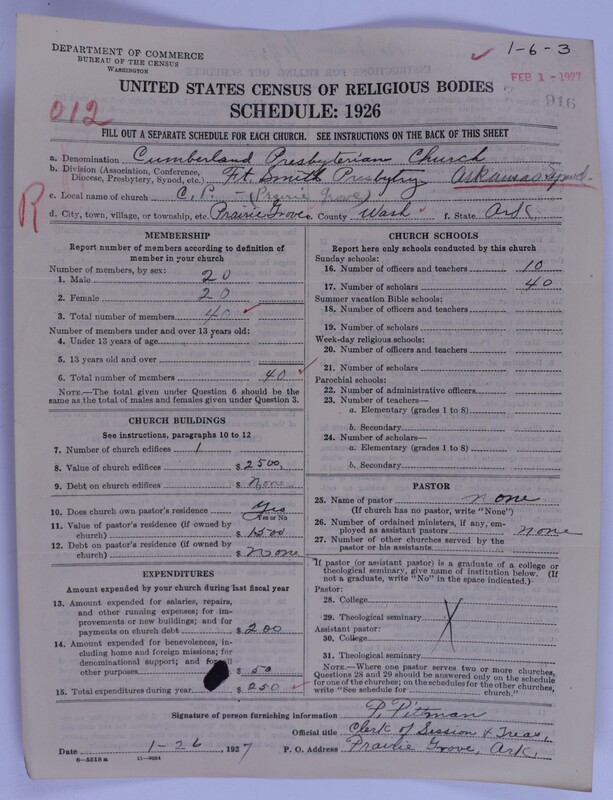 DEPARTMENT OF COMMERCE
BUREAU OF THE CENSUS
WASHINGTON
1-6-3
FEB 1 - 1927
916
012
R
UNITED STATES CENSUS OF RELIGIOUS BODIES
SCHEDULE: 1926
FILL OUT A SEPARATE SCHEDULE FOR EACH CHURCH. SEE INSTRUCTIONS ON THE BACK OF THIS SHEET
a. Denomination Cumberland Presbyterian Church
b. Division (Association, Conference, Diocese, Presbytery, Synod, etc.) Ft. Smith Presbytry Arkansas Synod
c. Local name of church C. P. (Prairie Grove)
d. City, town, village, or township, etc. Prairie Grove e. County Wash f. State Ark
MEMBERSHIP
Report number of members according to definition of
member in your church
Number of members, by sex:
1. Male 20
2. Female 20
3. Total number of members 40
Number of members under and over 13 years old:
4. Under 13 years of age
5. 13 years old and over
6. Total number of members 40
NOTE.—The total given under Question 6 should be
same as the total of males and females given under Question 3.
CHURCH BUILDINGS
See instructions, paragraphs 10 to 12
7. Number of church edifices 1
8. Value of church edifices $ 2500,
9. Debt on church edifices $ None
10. Does church own pastor's residence Yes
Yes or No
11. Value of pastor's residence (if owned by
church) $ 1500
12. Debt on pastor's residence (if owned by
church) $ None
EXPENDITURES
Amount expended by your church during last fiscal year
13. Amount expended for salaries, repairs,
and other running expense; for im-
provements or new buildings; and for
payments on church debt $ 200
14. Amount expended for benevolences, in-
cluding home and foreign missions; for
denominational support; and for all
other purposes $ 50
15. Total expenditures during year $ 250
CHURCH SCHOOLS
Report here only schools conducted by this church
Sunday schools:
16. Number of officers and teachers 10
17. Number of scholars 40
Summer vacation Bible schools:
18. Number of officers and teachers
19. Number of scholars
Week-day religious schools:
20. Number of officers and teachers
21. Number of scholars
Parochial schools:
22. Number of administrative officers
23. Number of teachers—
a. Elementary (grades 1 to 8)
b. Secondary
24. Number of scholars—
a. Elementary (grades 1 to 8)
b. Secondary
PASTOR
25. Name of pastor none
(If church has no pastor, write "None")
26. Number of ordained ministers, if any, em-
ployed as assistant pastors none
27. Number of other churches served by the
pastor or his assistants
If pastor (or assistant pastor) is a graduate of a college or
theological seminary, give name of institution below. (If
not a graduate, write "No" in the space indicated.)
Pastor:
28. College
29. Theological seminary
Assistant pastor:
30. College
31. Theological seminary
NOTE.—Where one pastor serves two or more churches,
Questions 28 and 29 should be answered only on the schedule
for one of the churches; on the schedules for the other churches,
write "See schedule for church."
Signature of person furnishing information P. Pitman
Official title Clerk of Session & Treas,
Date 1-26, 1927 P. O. Address Prairie Grove, Ark,
8-5318 a 11-9024